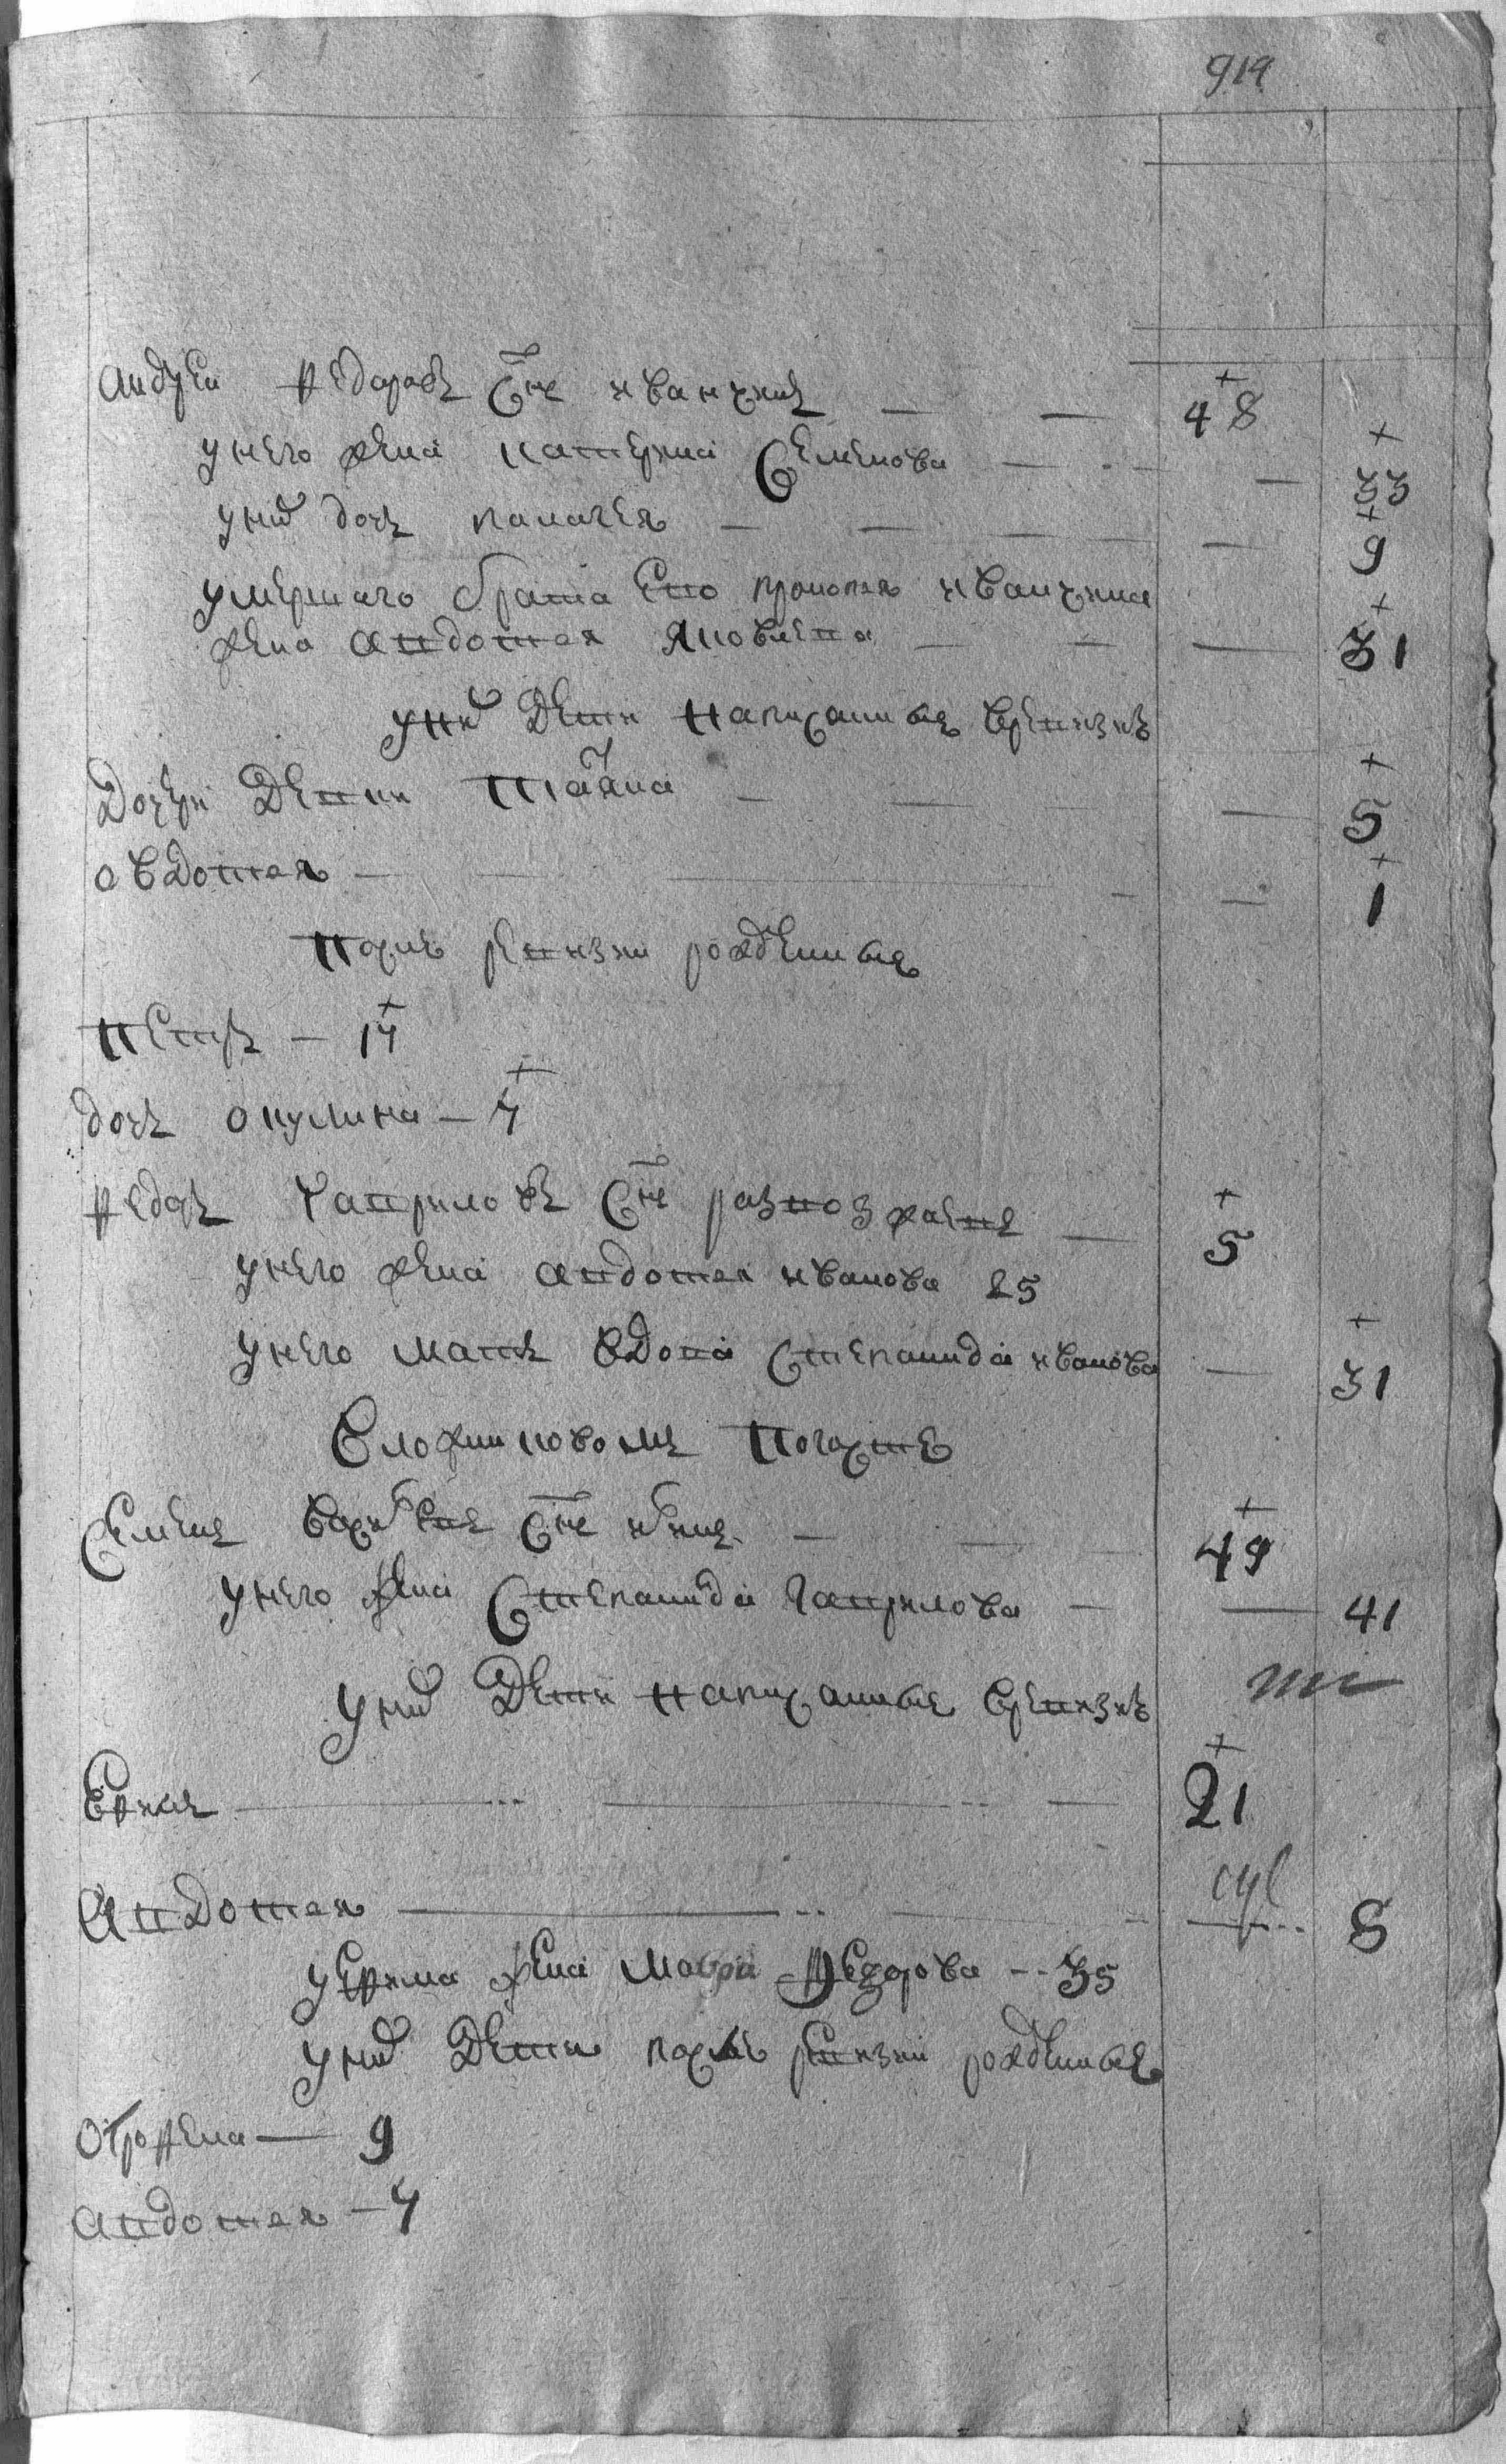 914
Андреи Федоровъ Снъ Иванчинъ — — 48
у него жена катерина Семенова — 33
у ниё дочь палагея — 9
умершаго брата Ево прокопья Иванчина
жена Авдотья Яковлева — 31
у ниё Дети написанные вревизиѣ
Дочери Девки Татяна — 5
овдотья — 1
посли ревизии рожденные
Петръ — 14
дочь окулина — 4
Федоръ Гавриловъ Снъ — 5
у него жена авдотья иванова 25
у него мать вдова Степанида иванова — 31
погосте
Семенъ Снъ — 49
у него жена Степанида Гаврилова — 41
у ниё Дети написанные вревизиѣ
Ефимъ — 21
Авдотья — 8
у Ефима жена Мавра Федорова — 35
у ниё Дети послѣ ревизии рожденные
Отрофена — 9
авдотья — 4